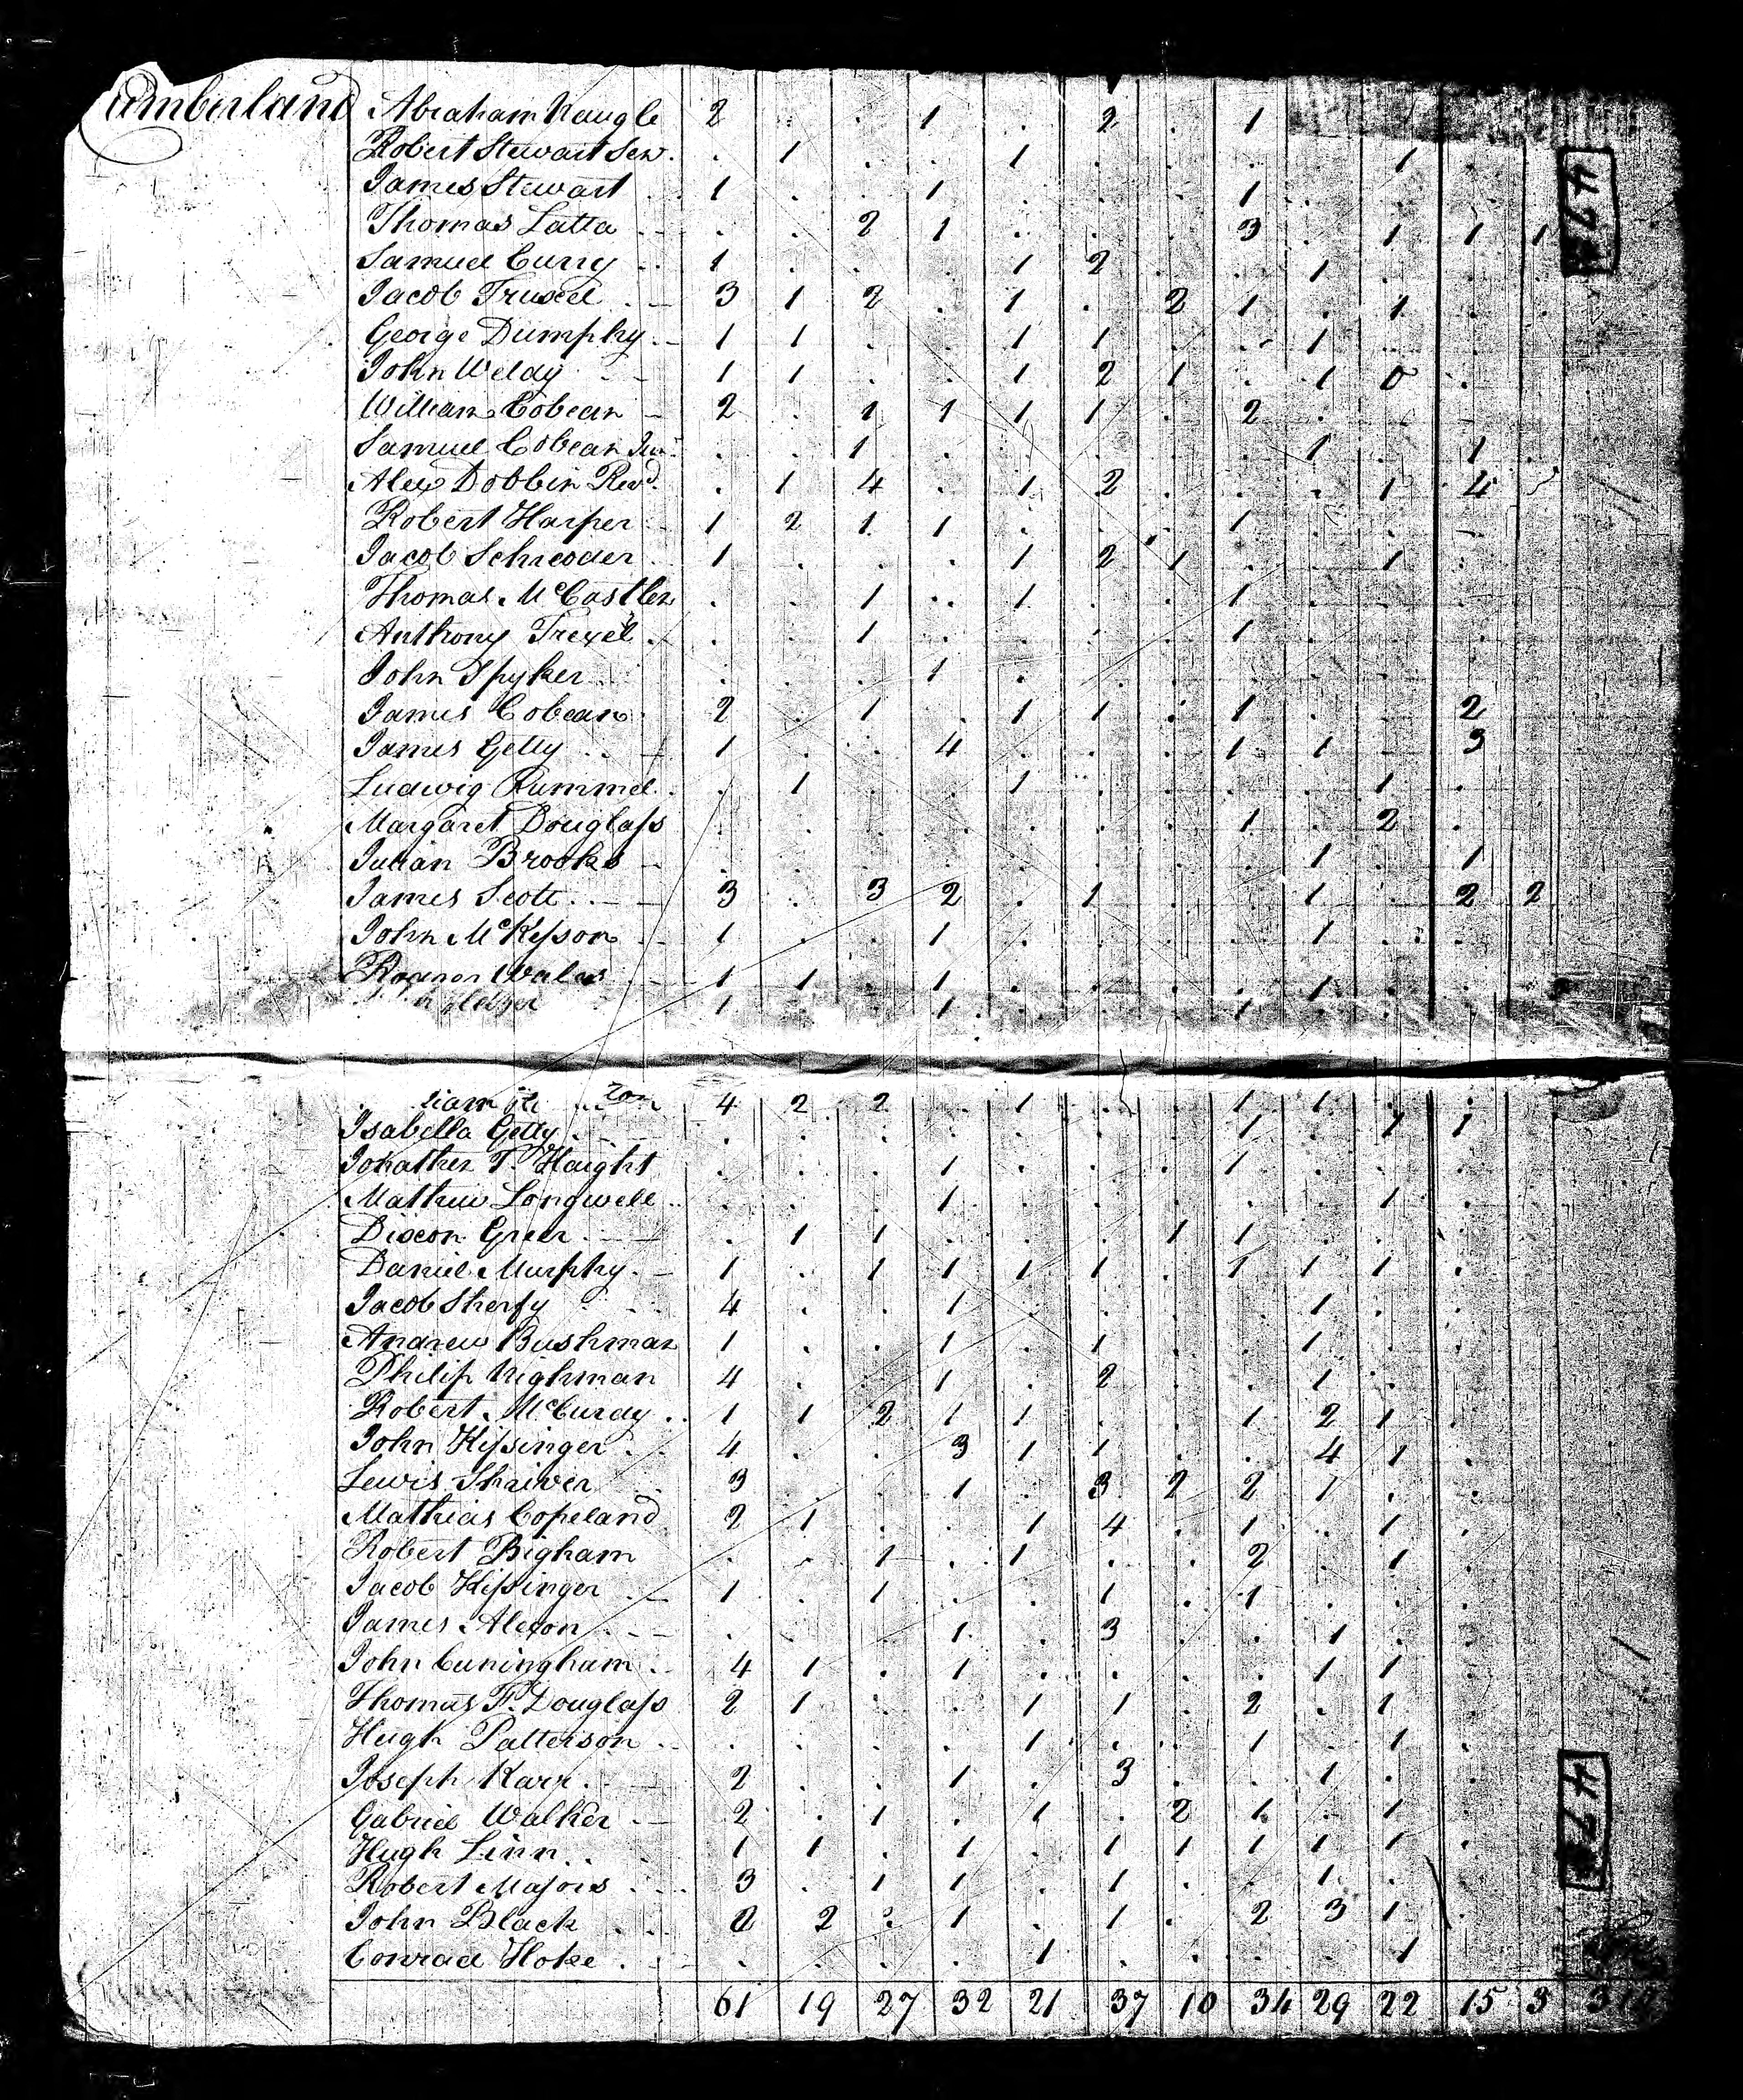 Cumberland Abraham Naugle 2 . . 1 . 2 . 1
Robert Stewart Sen. . 1 . . 1 . . . . 1 .
James Stewart 1 . . 1 . . . 1 . . .
Thomas Latta . . 2 1 . . . 3 . 1 1 1
Samuel Curry 1 . . . 1 2 . . 1 . .
Jacob Truxel 3 1 2 . 1 . 2 1 . 1 . .
George Dumphy 1 1 . . 1 1 . . 1 . .
John Weldy 1 1 . . 1 2 1 . 1 0 .
William Cobean 2 . 1 1 1 1 . 2 . . .
Samuel Cobean Jun. . . 1 . . . . . 1 . 1 .
Alex Dobbin Revd. . 1 4 . 1 2 . . . 1 4
Robert Harper 1 2 1 1 . . . 1 . . .
Jacob Schreoder 1 . . . 1 2 1 . . 1 .
Thomas McCastlen . . 1 . 1 . . 1 . . .
Anthony Trexel . . 1 . . . . 1 . . .
John Spyker . . . 1 . . . . . . .
James Cobean 2 . 1 . 1 1 . 1 . . 2
James Getty 1 . . 4 . . . 1 1 . 3
Ludwig Rummel . 1 . . 1 . . . . 1 .
Margaret Douglass . . . . . . . 1 . 2 .
Brooks . . . . . . . . 1 . 1
James Scott 3 . 3 2 . 1 . . 1 . 2 2
John McKesson 1 . . 1 . . . . 1 . .
1 1 . 1 . . . . 1 . .
1 . . 1 . . . 1 . . .
4 2 2 . 1 . . 1 1 . .
Isabella Getty . . . . . . . 1 . 1 1
Jonathen T. Haight . . . 1 . . . 1 . . .
Mathew Longwell . . . 1 . . . . . 1 .
Dixcon Greer . 1 1 . . . 1 1 . . .
Daniel Murphy 1 . 1 1 1 1 . 1 1 1 .
Jacob Sherfy 4 . . 1 . . . . 1 . .
Andrew Bushman 1 . . 1 . 1 . . 1 . .
Philip Nighman 4 . . 1 . 2 . . 1 . .
Robert McCurdy 1 1 2 1 1 . . 1 2 1 .
John Kissinger 4 . . 3 1 1 . . 4 1 .
Lewis Shriver 3 . . 1 . 3 2 2 1 . .
Mathias Copeland 2 1 . . 1 4 . 1 . 1 .
Robert Bigham . . 1 . 1 . . 2 . 1 .
Jacob Kissinger 1 . 1 . . 1 . 1 . . .
James Alexon . . . 1 . 3 . . 1 . .
John Cuningham 4 1 . 1 . . . . 1 1
Thomas F. Douglass 2 1 . . 1 1 . 2 . 1
Hugh Patterson . . . . 1 . . 1 . 1 .
Joseph Karr 2 . . 1 . 3 . . 1 . .
Gabriel Walker 2 . 1 . 1 . 2 1 . 1
Hugh Linn 1 1 . 1 . 1 1 1 1 1 .
Robert Majors 3 . 1 1 . 1 . . 1 .
John Black 2 2 . 1 . 1 . 2 3 1 .
Conrad Hoke . . . . 1 . . . . 1
61 19 27 32 21 37 10 34 29 22 15 3